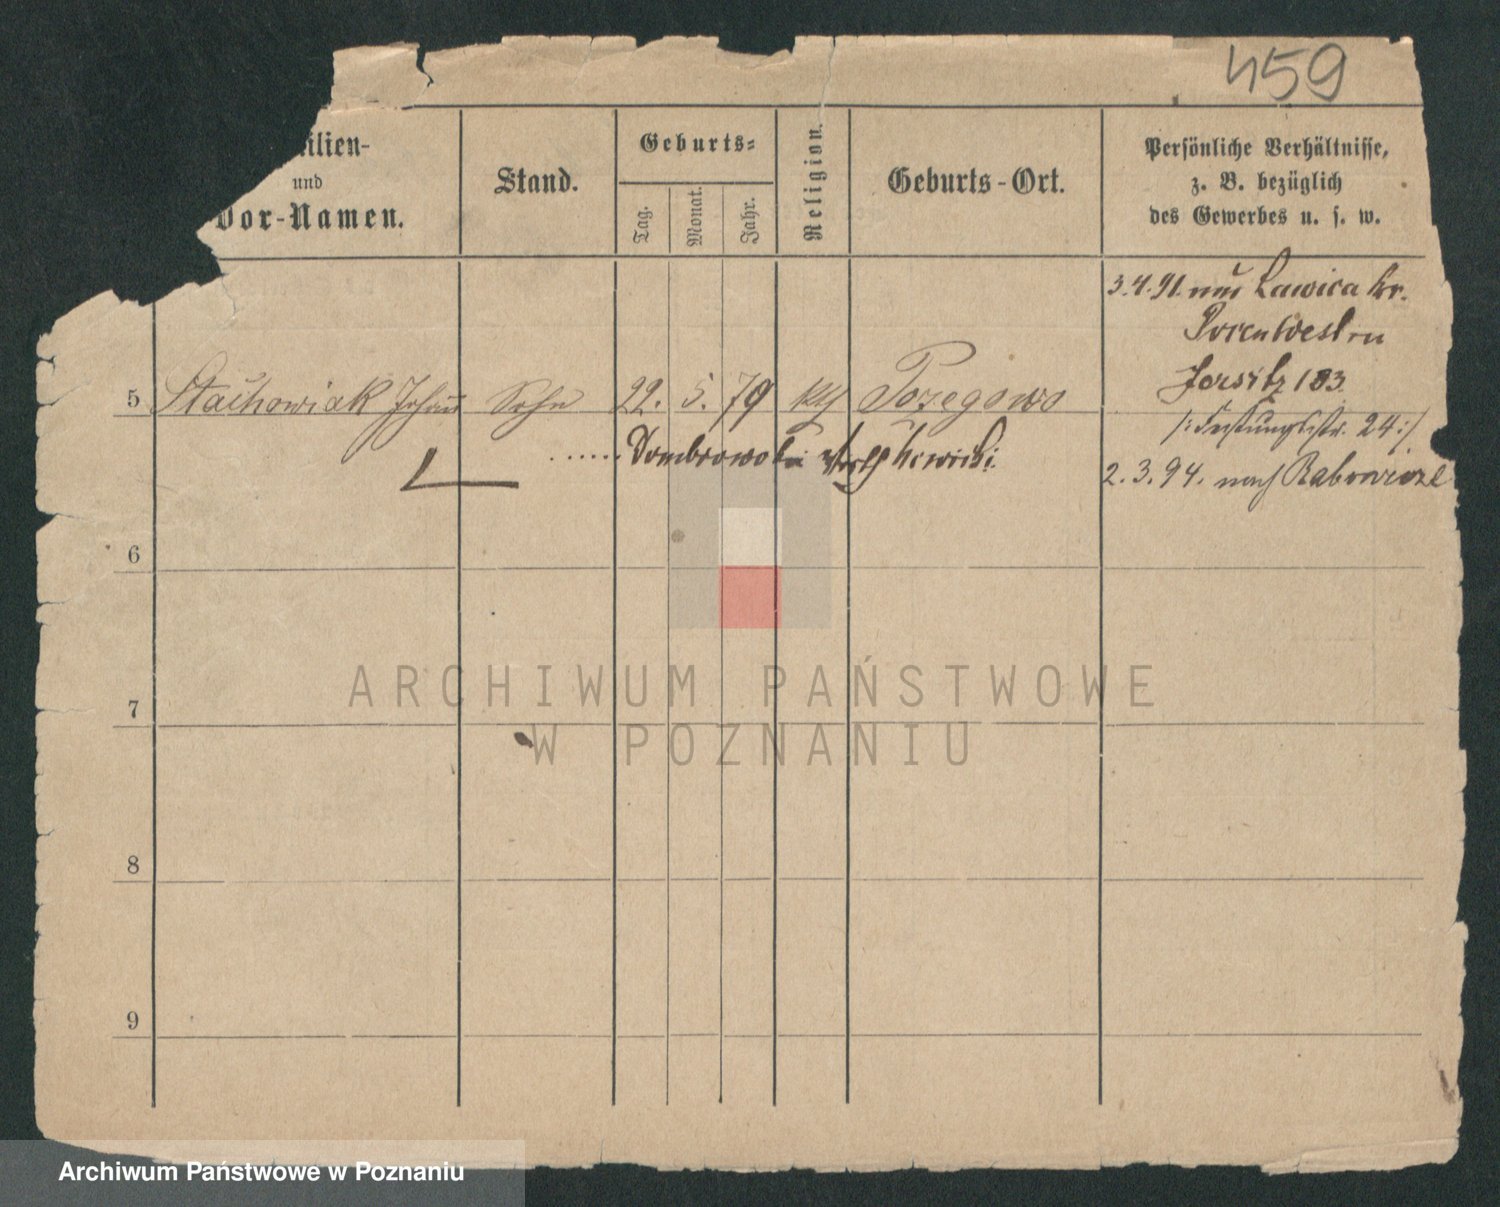 459
ilien-
und
Vor-Namen.
Stand.
Geburts-
Tag.
Monat.
Jahr.
Religion.
Geburts-Ort.
Persönliche Verhältnisse,
z. B. bezüglich
des Gewerbes u. s. w.
3.4.91. Lawica kr.
Posen West
Jersitz 183
5 Stachowiak Johann Sohn 22. 5. 79 kth Pozegowo
/: Festungsstr. 24 :/
Dombrowski
2.3.94. nach
6
7
8
9
ARCHIWUM PAŃSTWOWE
W POZNANIU
Archiwum Państwowe w Poznaniu